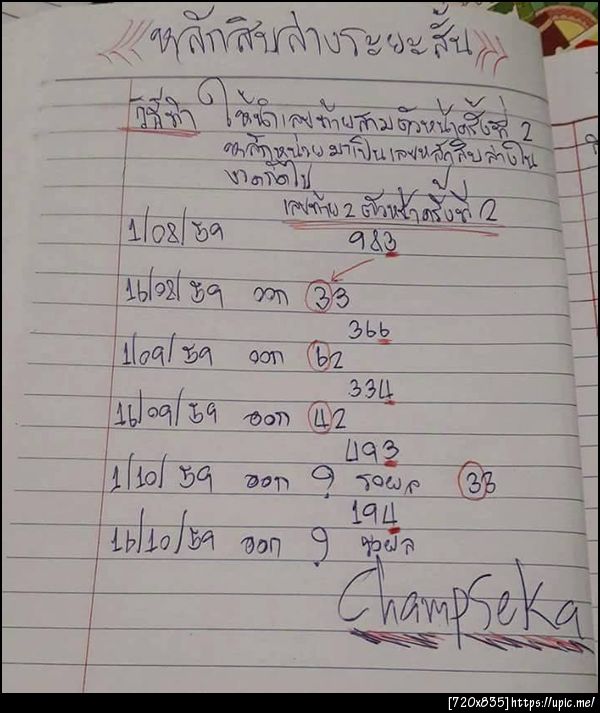 หลักสิบล่างระยะสั้น
วิธีทำ ให้ยึดเลขท้ายสามตัวหน้าครั้งที่ 2
หลักหน่วยมาเป็นเลขหลักสิบล่างใน
งวดถัดไป
เลขท้าย 2 ตัวหน้าครั้งที่ 2
1/08/59 983
16/08/59 ออก 33
366
1/09/59 ออก 62
334
16/09/59 ออก 42
493
1/10/59 ออก ? รอผล 33
194
16/10/59 ออก ? รอผล
ChampSeka
[720x835]https://upic.me/